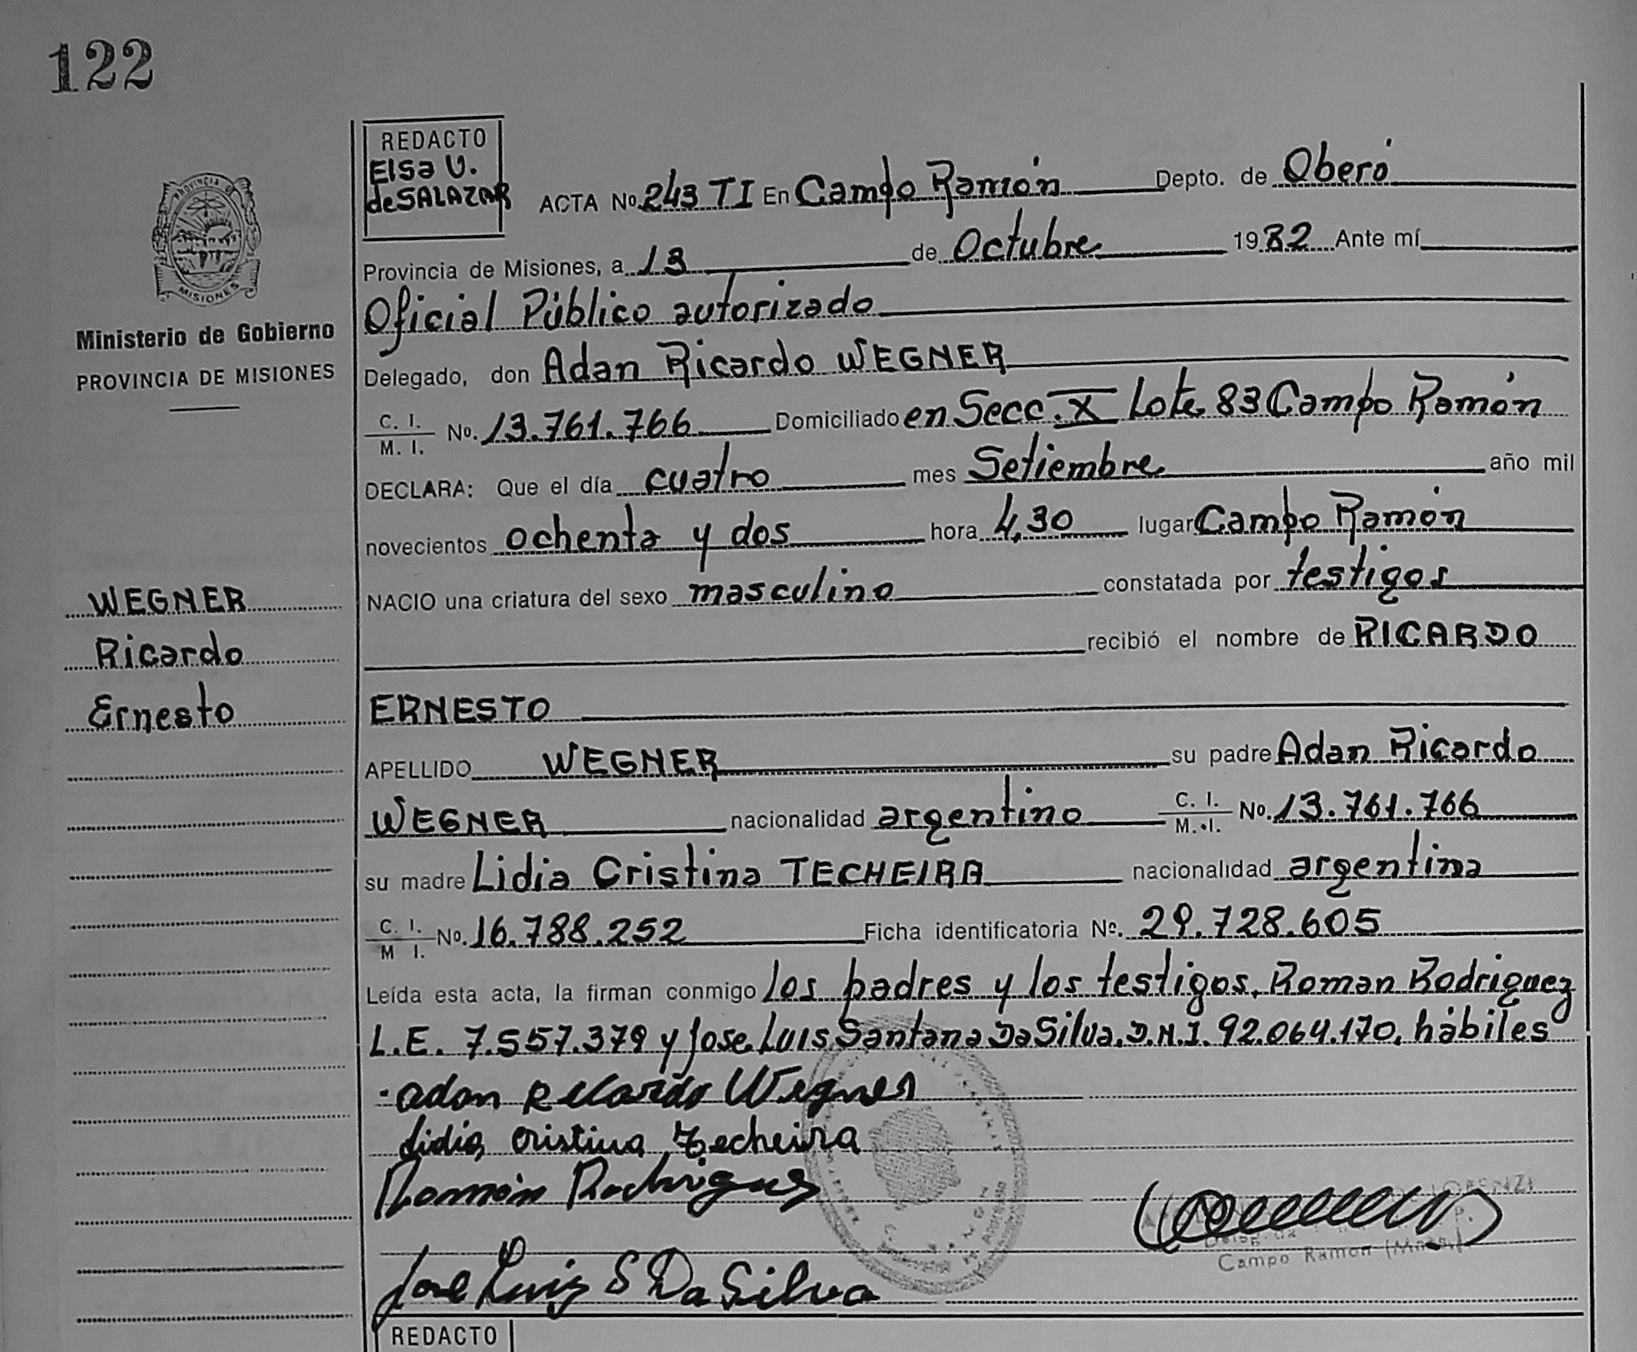 122
REDACTO
Elsa V.
de SALAZAR
ACTA No. 243 TI En Campo Ramón Depto. de Oberá
Provincia de Misiones, a 13 de Octubre 1982 Ante mí
Oficial Público autorizado
Delegado, don Adan Ricardo WEGNER
C. I. M. I. No. 13.761.766 Domiciliado en Secc. X Lote 83 Campo Ramón
DECLARA: Que el día cuatro mes Setiembre año mil
novecientos ochenta y dos hora 4,30 lugar Campo Ramón
NACIO una criatura del sexo masculino constatada por testigos
recibió el nombre de RICARDO
ERNESTO
APELLIDO WEGNER su padre Adan Ricardo
WEGNER nacionalidad argentino C. I. M. I. No. 13.761.766
su madre Lidia Cristina TECHEIRA nacionalidad argentina
C. I. M I. No. 16.788.252 Ficha identificatoria No. 29.728.605
Leída esta acta, la firman conmigo los padres y los testigos, Roman Rodriguez
L.E. 7.557.379 y Jose Luis Santana Da Silva, D.N.I. 92.064.170, hábiles
adan Ricardo Wegner
Lidia cristina Techeira
Ramón Rodrigues
Jose Luiz S Da Silva
Campo Ramon (Mnes.)
PROVINCIA DE
MISIONES
Ministerio de Gobierno
PROVINCIA DE MISIONES
WEGNER
Ricardo
Ernesto
REDACTO